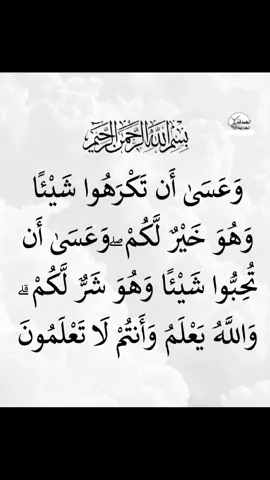 بِسْمِ اللَّهِ الرَّحْمَٰنِ الرَّحِيمِ
وَعَسَىٰ أَن تَكْرَهُوا شَيْئًا
وَهُوَ خَيْرٌ لَّكُمْ ۖ وَعَسَىٰ أَن
تُحِبُّوا شَيْئًا وَهُوَ شَرٌّ لَّكُمْ ۗ
وَاللَّهُ يَعْلَمُ وَأَنتُمْ لَا تَعْلَمُونَ